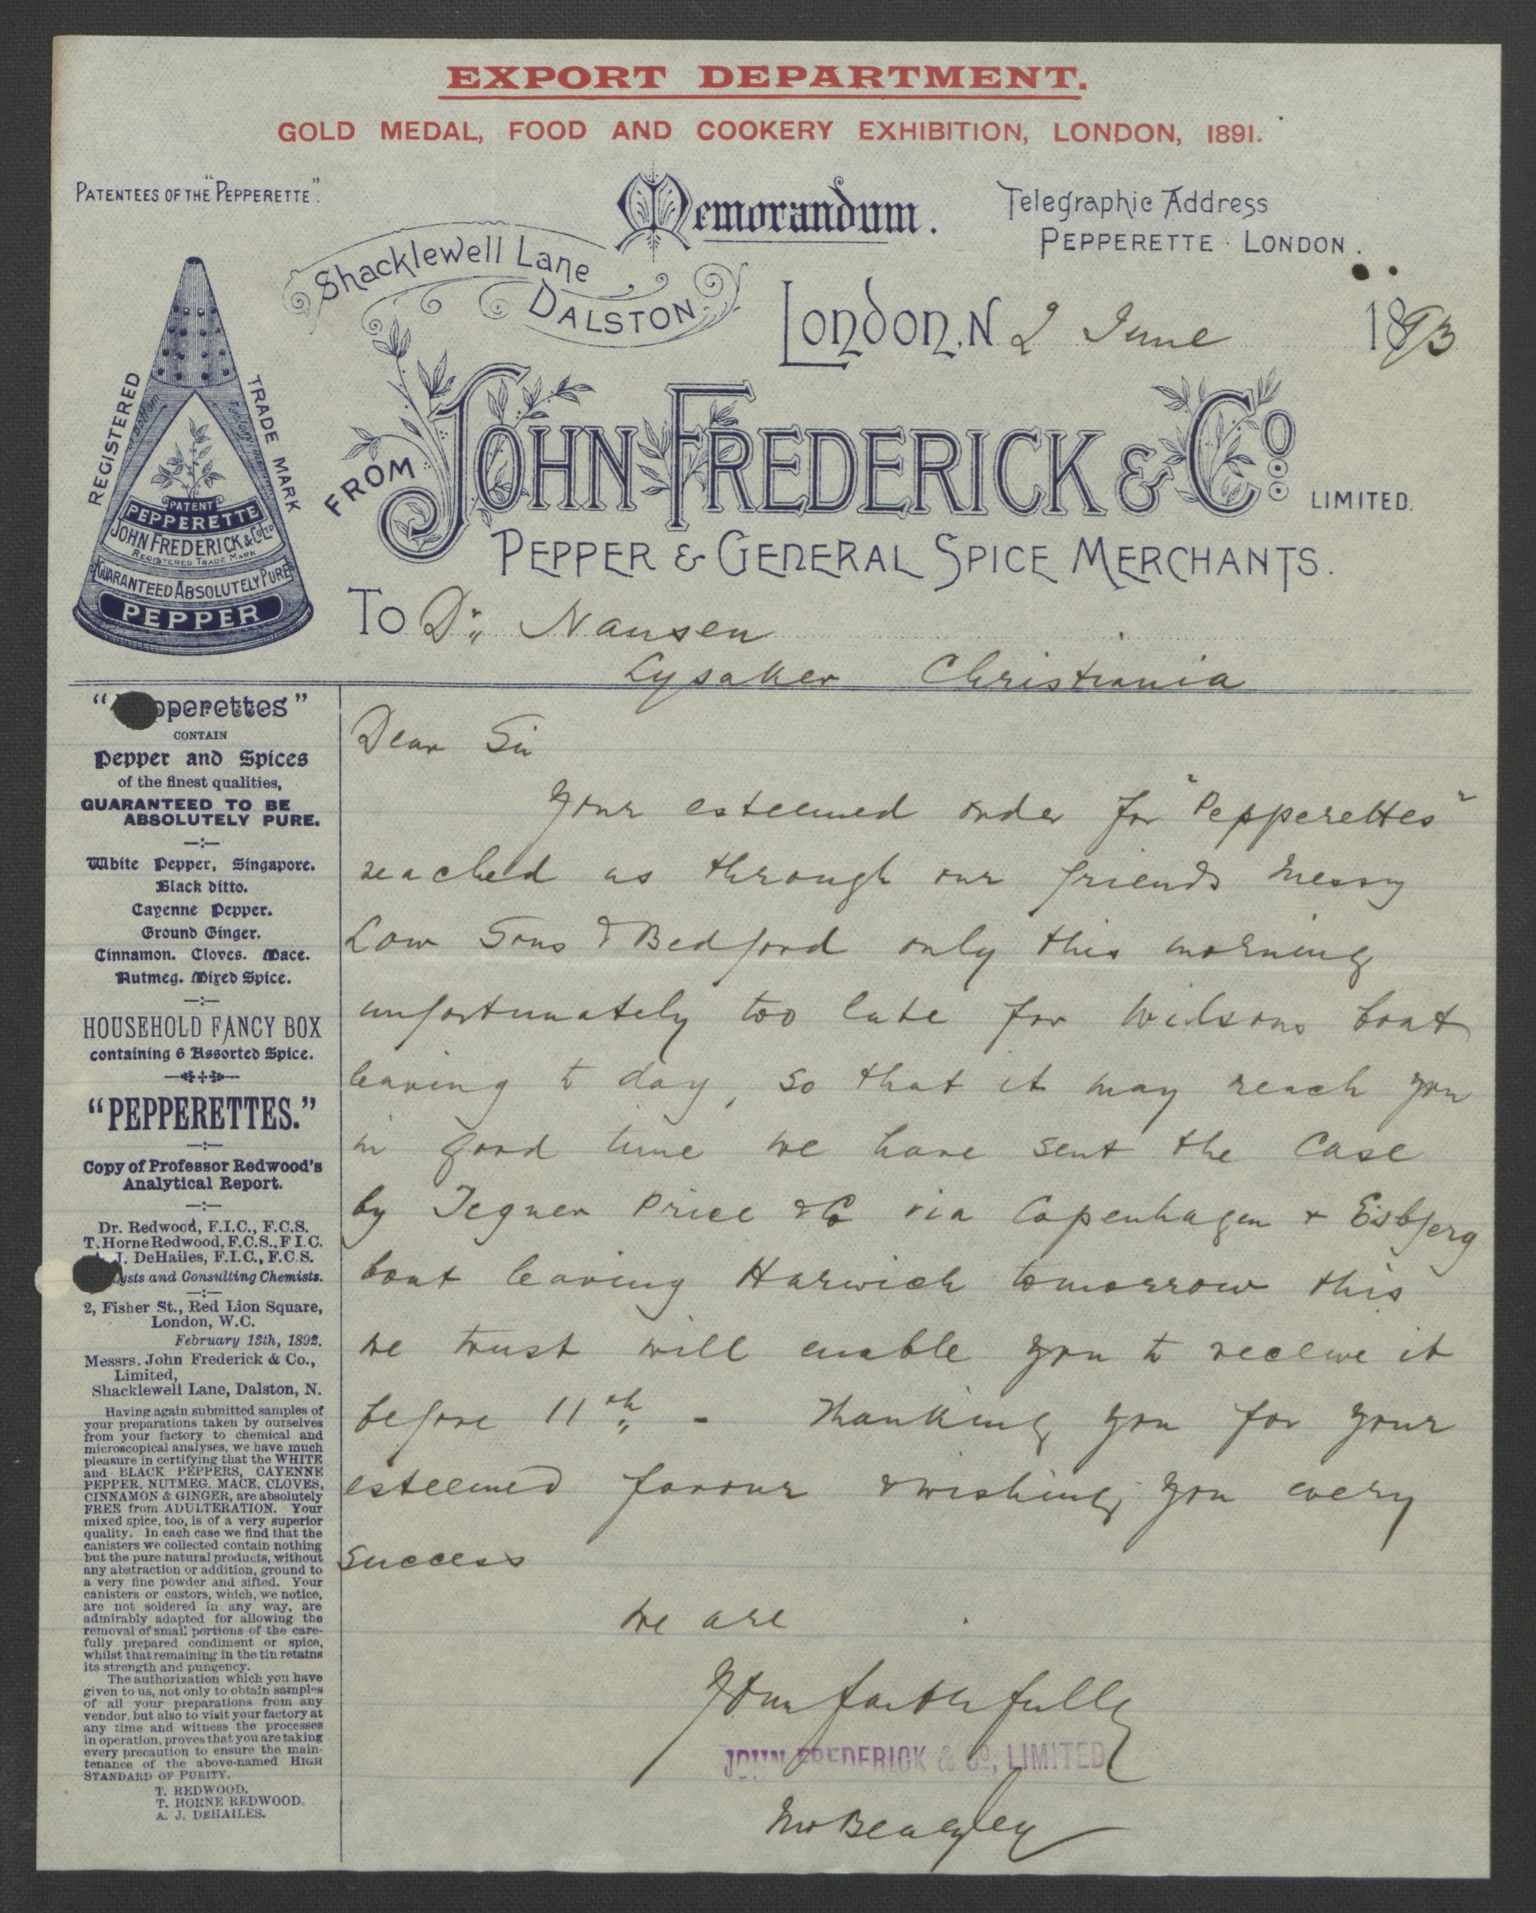 EXPORT DEPARTMENT.
GOLD MEDAL, FOOD AND COOKERY EXHIBITION, LONDON, 1891.
PATENTEES OF THE "PEPPERETTE".
Memorandum.
Telegraphic Address
PEPPERETTE · LONDON.
Shacklewell Lane
DALSTON.
London, N 2 June 1893
REGISTERED TRADE MARK
PATENT
PEPPERETTE
JOHN FREDERICK & Co LTD
REGISTERED TRADE MARK
GUARANTEED ABSOLUTELY PURE
PEPPER
FROM JOHN FREDERICK & Co. LIMITED.
PEPPER & GENERAL SPICE MERCHANTS.
To Dr. Nansen
Lysaker Christiania
"Pepperettes"
CONTAIN
Pepper and Spices
of the finest qualities,
GUARANTEED TO BE
ABSOLUTELY PURE.
White Pepper, Singapore.
Black ditto.
Cayenne Pepper.
Ground Ginger.
Cinnamon. Cloves. Mace.
Nutmeg. Mixed Spice.
HOUSEHOLD FANCY BOX
containing 6 Assorted Spice.
"PEPPERETTES."
Copy of Professor Redwood's
Analytical Report.
Dr. Redwood, F.I.C., F.C.S.
T. Horne Redwood, F.C.S., F I.C.
A. J. DeHailes, F.I.C., F.C.S.
ysts and Consulting Chemists.
2, Fisher St., Red Lion Square,
London, W.C.
February 13th, 1892.
Messrs. John Frederick & Co.,
Limited,
Shacklewell Lane, Dalston, N.
Having again submitted samples of
your preparations taken by ourselves
from your factory to chemical and
microscopical analyses, we have much
pleasure in certifying that the WHITE
and BLACK PEPPERS, CAYENNE
PEPPER, NUTMEG, MACE, CLOVES,
CINNAMON & GINGER, are absolutely
FREE from ADULTERATION. Your
mixed spice, too, is of a very superior
quality. In each case we find that the
canisters we collected contain nothing
but the pure natural products, without
any abstraction or addition, ground to
a very fine powder and sifted. Your
canisters or castors, which, we notice,
are not soldered in any way, are
admirably adapted for allowing the
removal of small portions of the care-
fully prepared condiment or spice,
whilst that remaining in the tin retains
its strength and pungency.
The authorization which you have
given to us, not only to obtain samples
of all your preparations from any
vendor, but also to visit your factory at
any time and witness the processes
in operation, proves that you are taking
every precaution to ensure the main-
tenance of the above-named HIGH
STANDARD OF PURITY.
T. REDWOOD.
T. HORNE REDWOOD.
A. J. DEHAILES.
Dear Sir
Your esteemed order for "Pepperettes"
reached us through our friends Messrs
Low Sons & Bedford only this morning
unfortunately too late for Wilsons boat
leaving to day, so that it may reach you
in good time we have sent the case
by Tegner Price & Co via Copenhagen + Esbjerg
boat leaving Harwich tomorrow this
we trust will enable you to receive it
before 11th - Thanking you for your
esteemed favour & wishing you every
success
We are
Yours faithfully
JOHN FREDERICK & Co, LIMITED